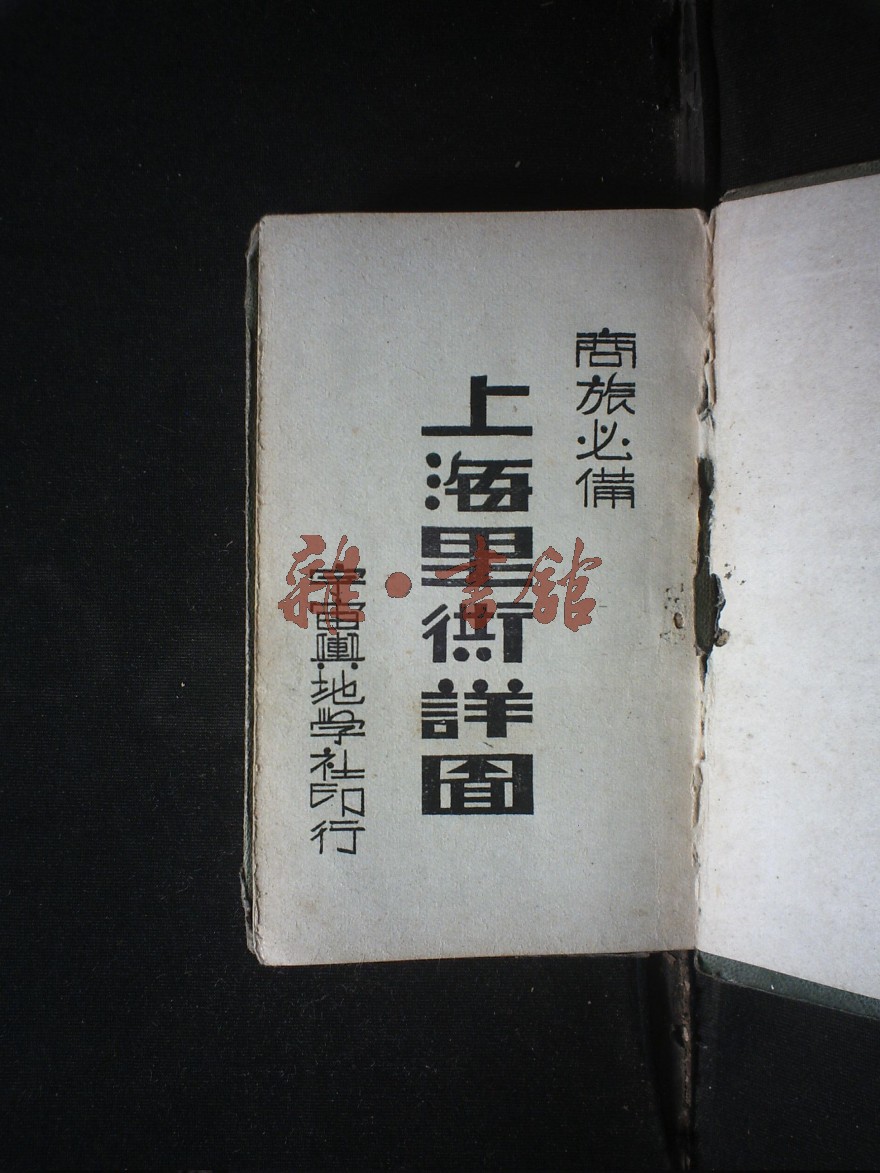 商旅必備
上海里衖詳圖
宇宙輿地学社印行
雜·書館